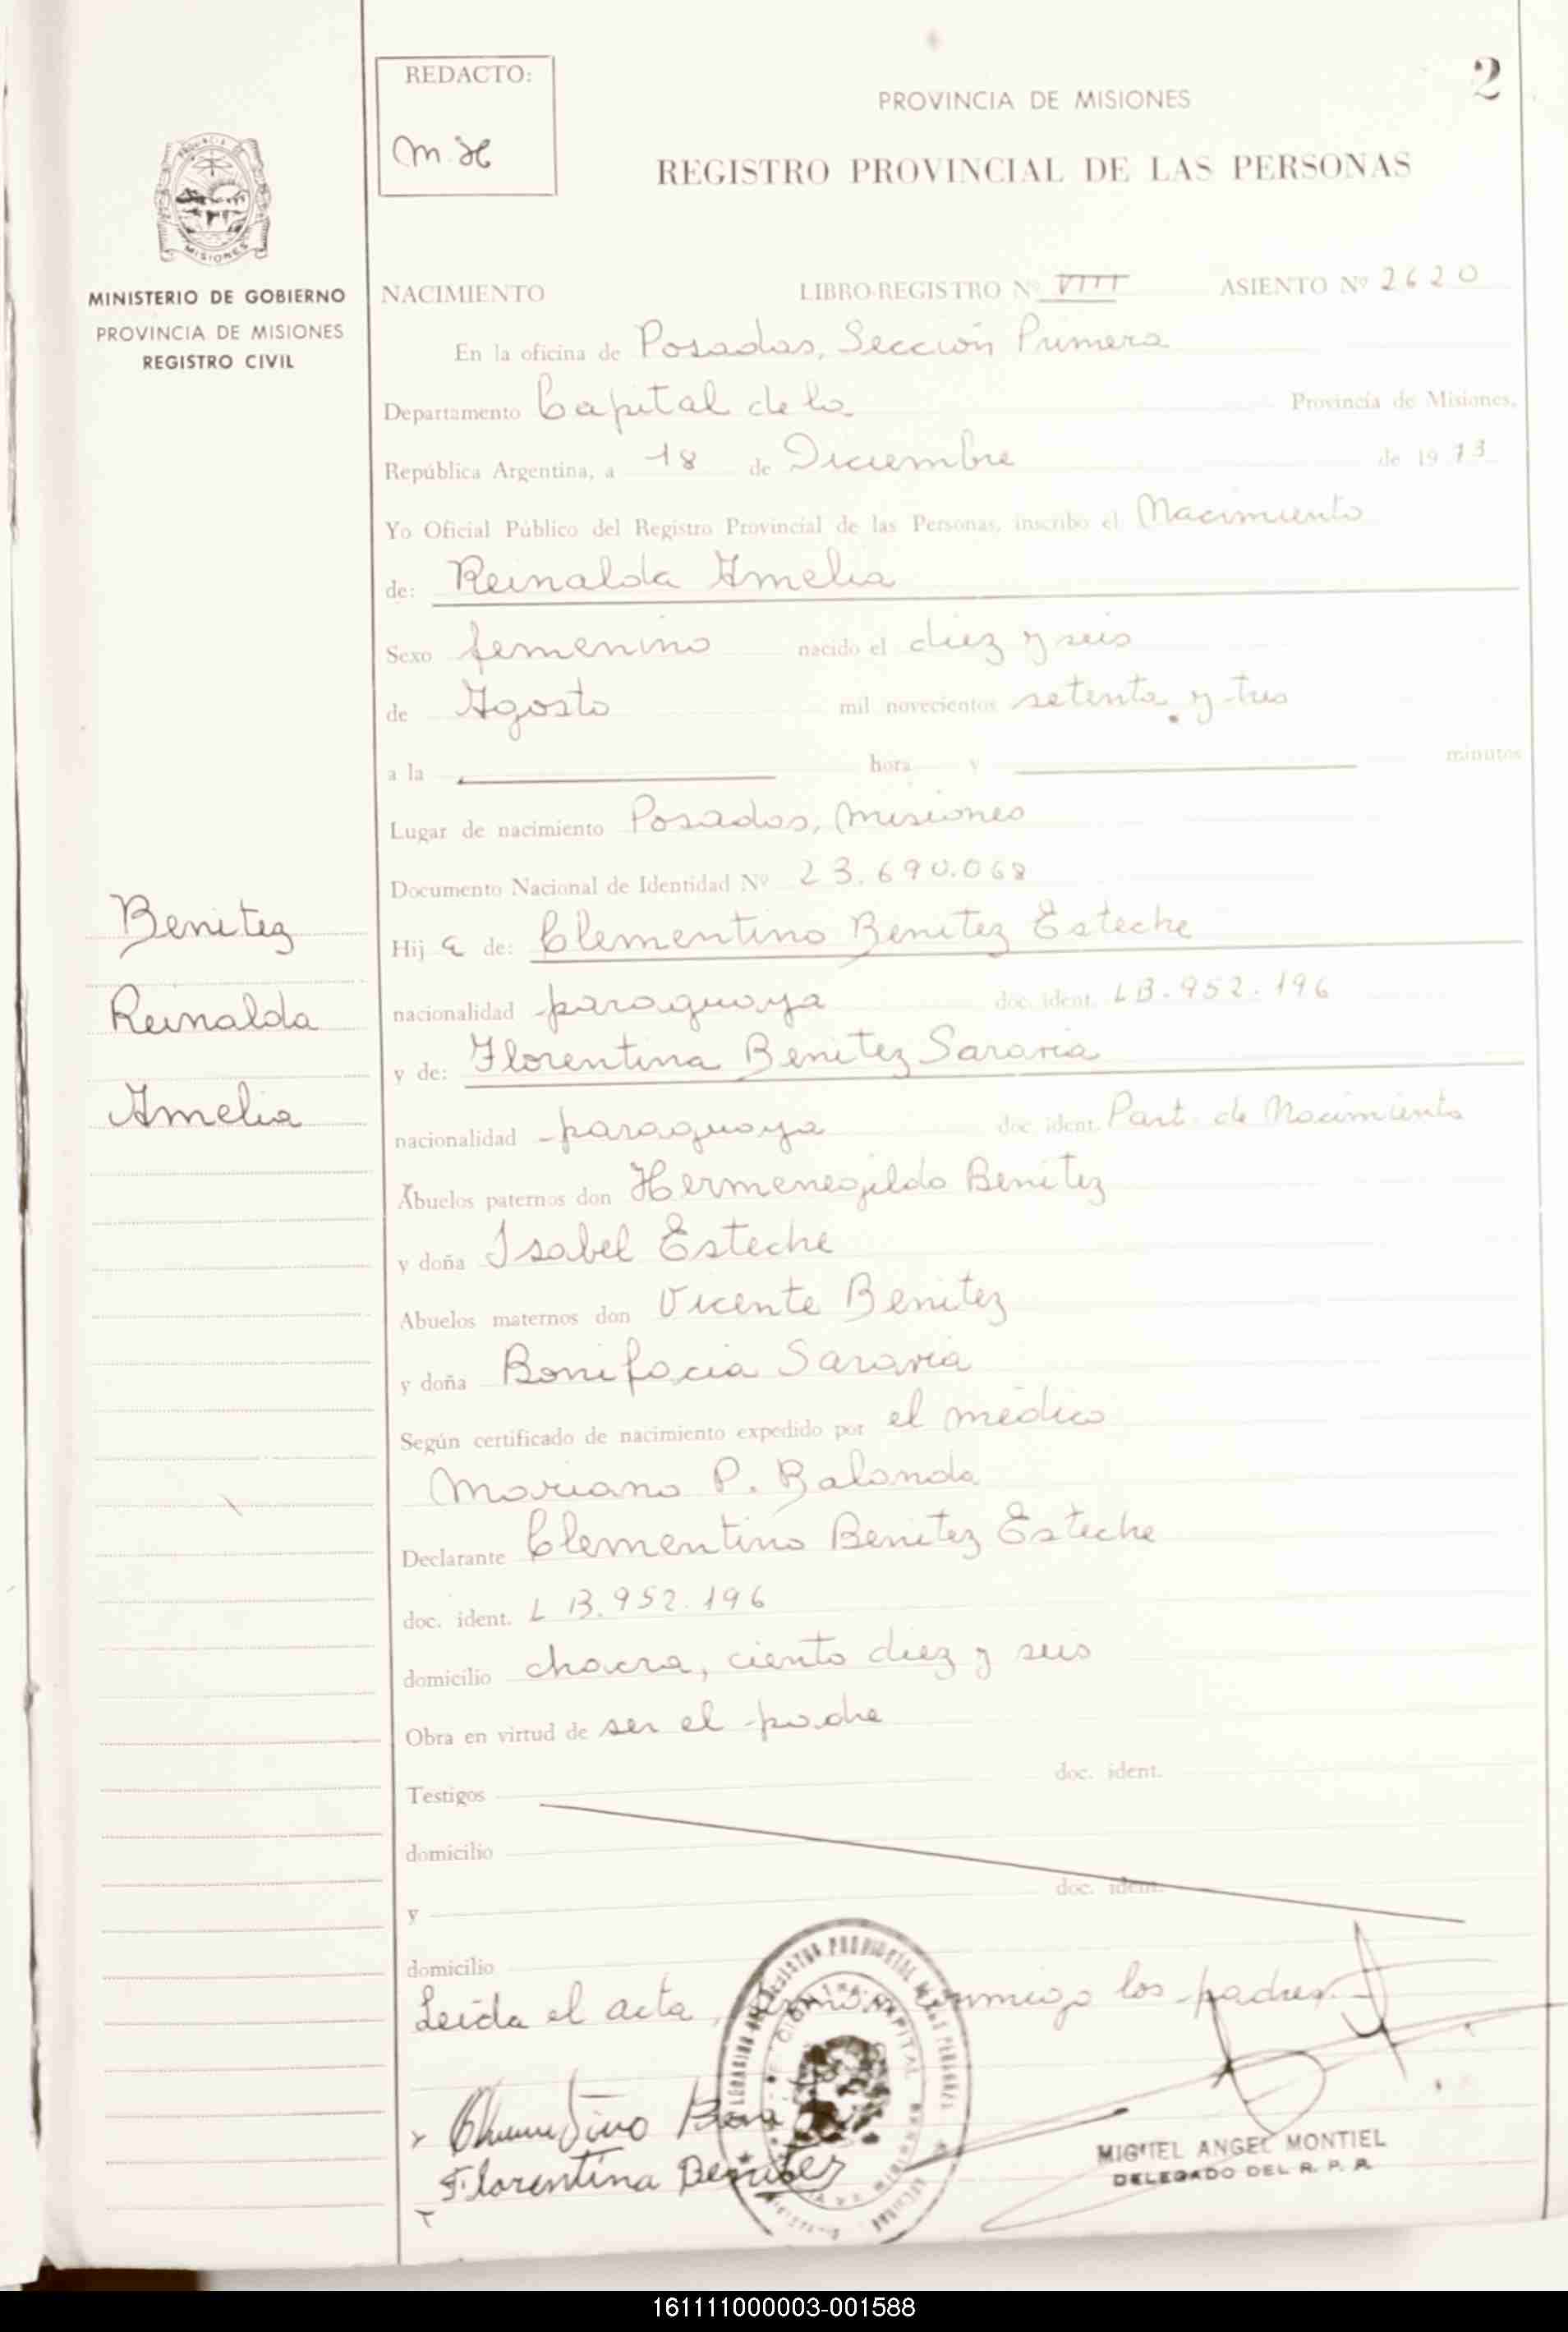 REDACTO:
M. H
2
PROVINCIA DE MISIONES
REGISTRO PROVINCIAL DE LAS PERSONAS
PROVINCIA DE
MISIONES
MINISTERIO DE GOBIERNO
PROVINCIA DE MISIONES
REGISTRO CIVIL
NACIMIENTO LIBRO-REGISTRO Nº VIII ASIENTO Nº 2620
En la oficina de Posadas, Sección Primera
Departamento Capital de la Provincia de Misiones,
República Argentina, a 18 de Diciembre de 1973
Yo Oficial Público del Registro Provincial de las Personas, inscribo el Nacimiento
de: Reinalda Amelia
Sexo femenino nacido el diez y seis
de Agosto mil novecientos setenta y tres
a la hora y minutos
Lugar de nacimiento Posadas, Misiones
Documento Nacional de Identidad Nº 23.690.068
Benitez
Reinalda
Amelia
Hija de: Clementino Benitez Esteche
nacionalidad paraguaya doc. ident. LB.952.196
y de: Florentina Benitez Saravia
nacionalidad paraguaya doc. ident. Part. de Nacimiento
Abuelos paternos don Hermenegildo Benitez
y doña Isabel Esteche
Abuelos maternos don Vicente Benitez
y doña Bonifacia Saravia
Según certificado de nacimiento expedido por el médico
Mariano P. Balanda
Declarante Clementino Benitez Esteche
doc. ident. L B.952.196
domicilio chacra, ciento diez y seis
Obra en virtud de ser el padre
Testigos doc. ident.
domicilio
y doc. ident.
domicilio
Leida el acta, firman conmigo los padres.
Florentina Benitez
MIGUEL ANGEL MONTIEL
DELEGADO DEL R. P. P.
161111000003-001588